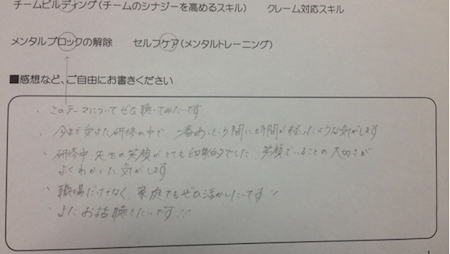 チームビルディング(チームのシナジーを高めるスキル) クレーム対応スキル
メンタルブロックの解除 セルフケア(メンタルトレーニング)
■感想など、ご自由にお書きください
・このテーマについてぜひ聴いてみたいです
・今まで受けた研修の中で、一番あっという間に時間が経ったような気がします
・研修中、先生の笑顔がとても印象的でした。笑顔でいることの大切さが
よくわかった気がします
・職場だけでなく、家庭でもぜひ活かしたいです!
・またお話聴きたいです!!